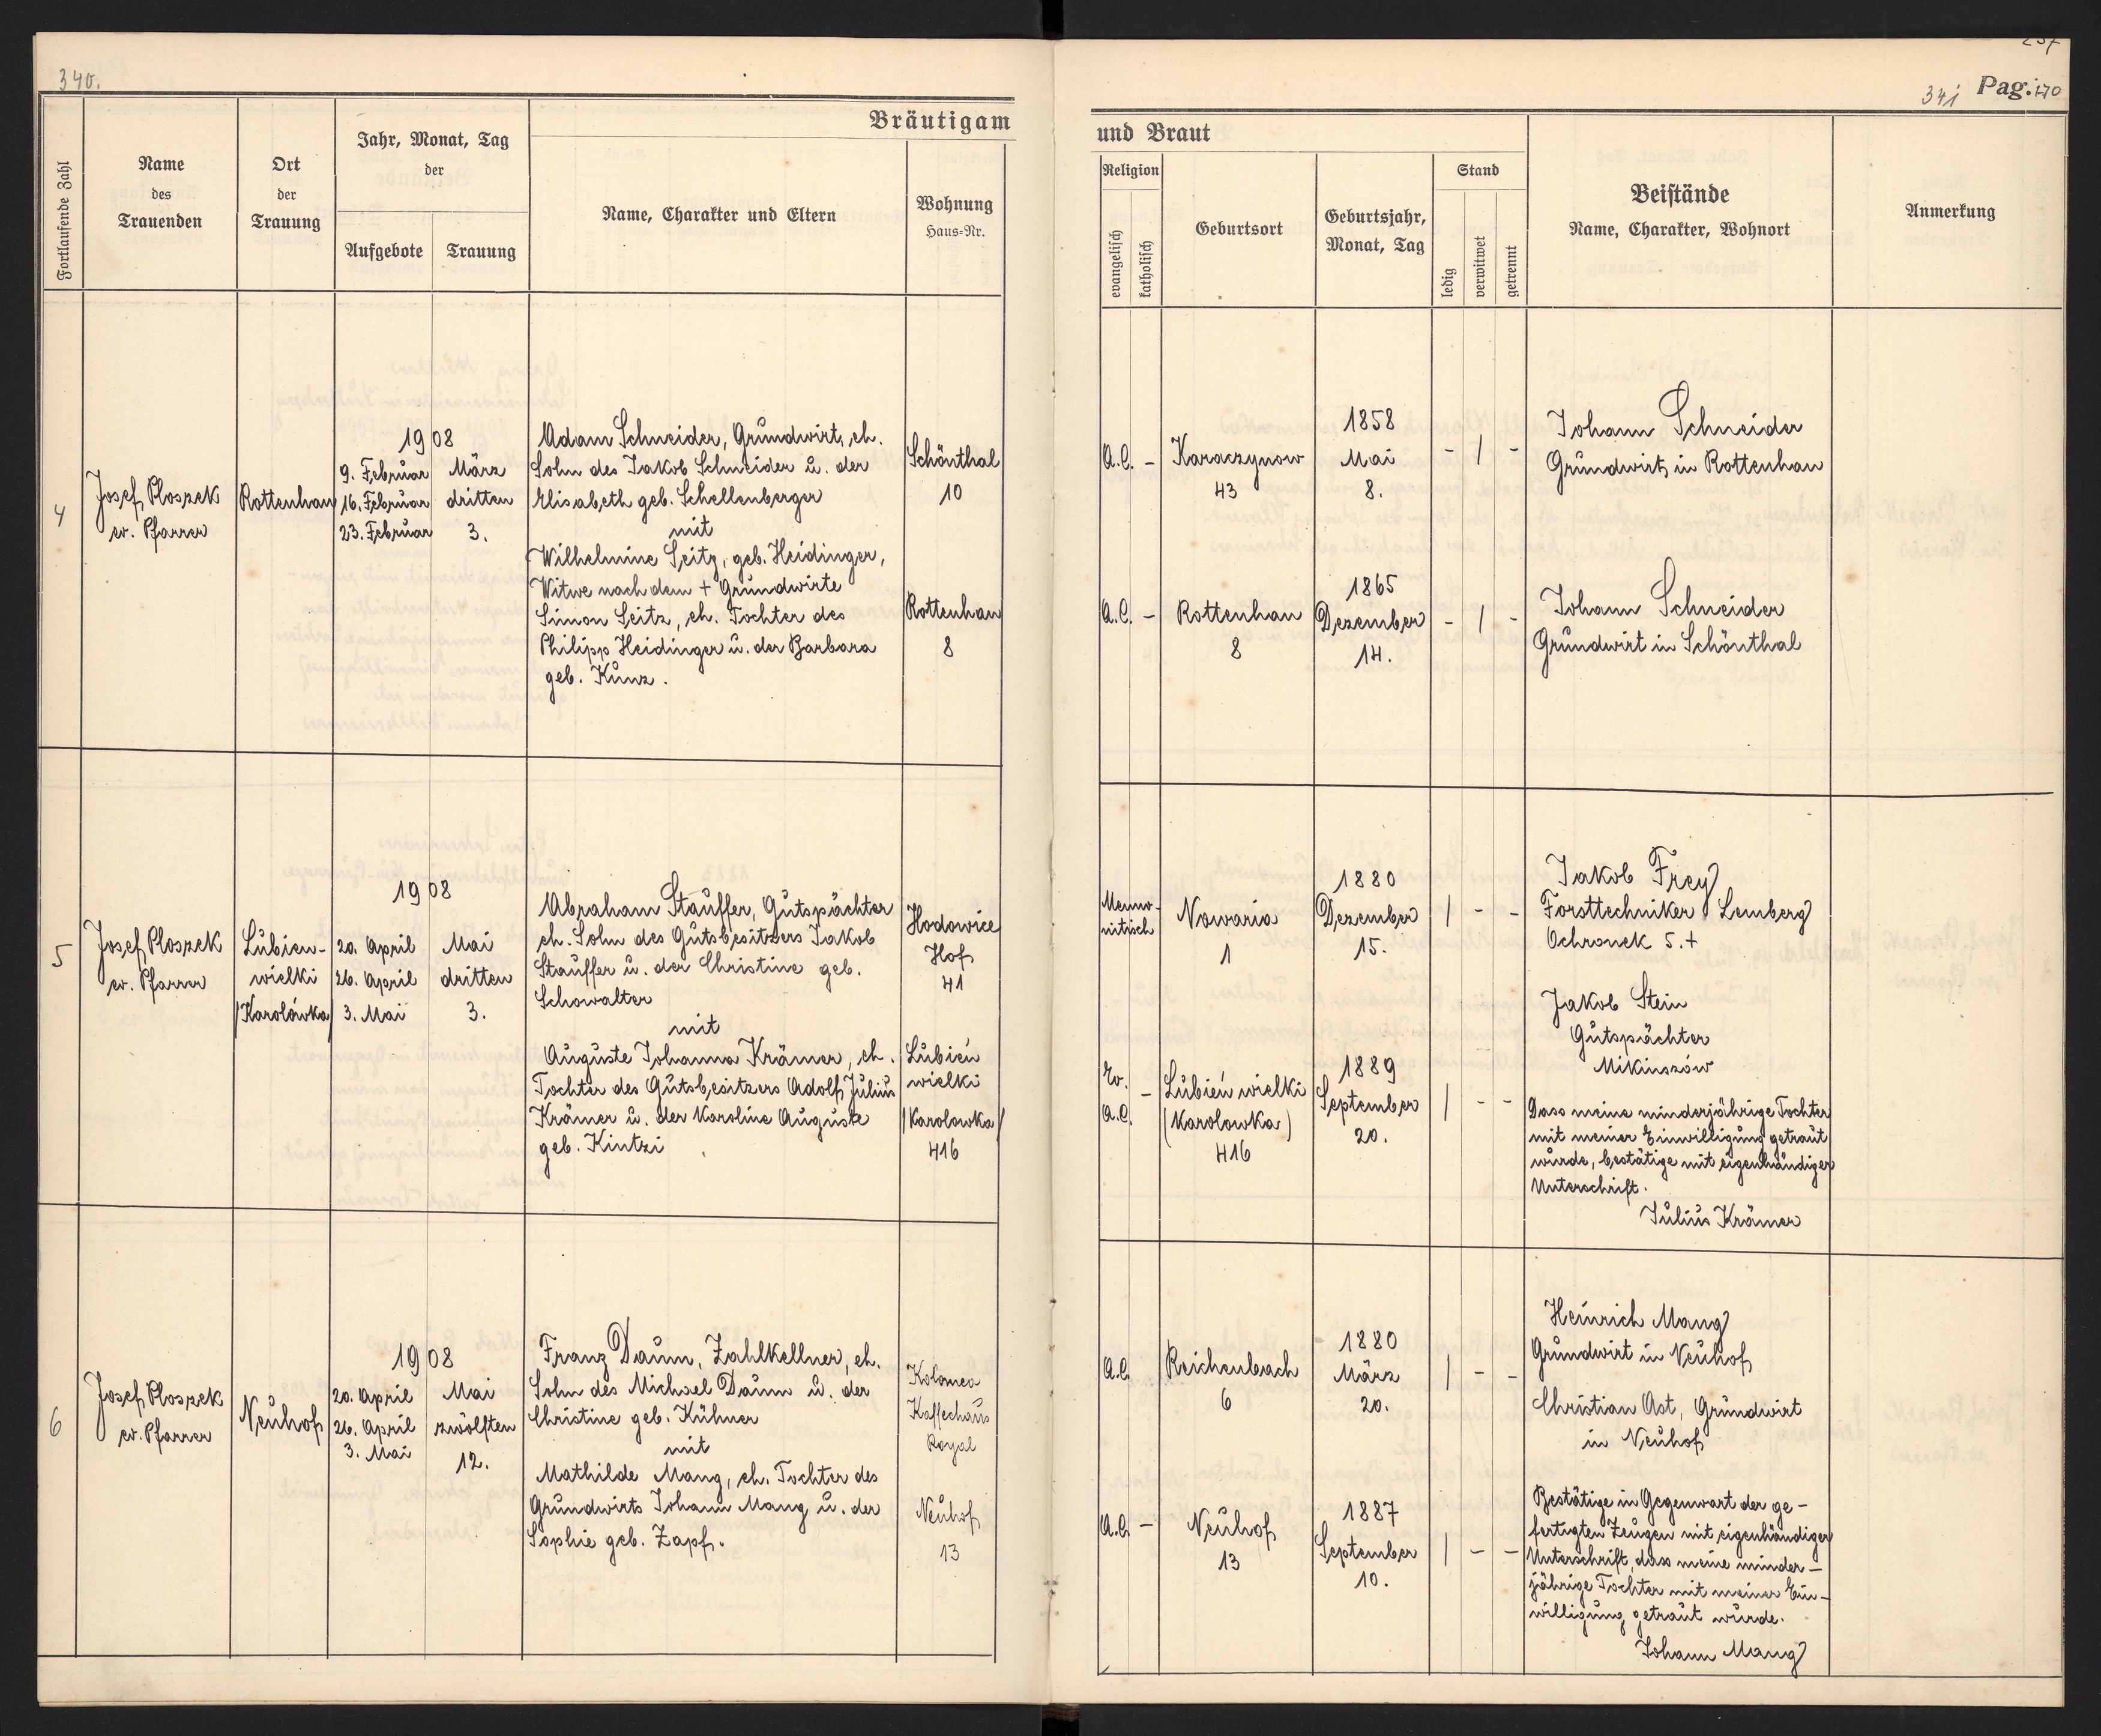 340.
Bräutigam
Fortlaufende Zahl
Name
des
Trauenden
Ort
der
Trauung
Jahr, Monat, Tag
der
Aufgebote
Trauung
Name, Charakter und Eltern
Wohnung
Haus-Nr.
4
Josef Ploszek
ev. Pfarrer
Rottenhan
1908
9. Februar
16. Februar
23. Februar
März
dritten
3.
Adam Schneider, Grundwirt, eh.
Sohn des Jakob Schneider u. der
Elisabeth geb. Schellenberger
mit
Wilhelmine Seitz, geb. Heidinger,
Witwe nach dem + Grundwirte
Simon Seitz, eh. Tochter des
Philipp Heidinger u. der Barbara
geb. Kunz.
Schönthal
10
Rottenhan
8
5
Josef Ploszek
ev. Pfarrer
Lubien-
wielki
/Karolówka/
1908
20. April
26. April
3. Mai
Mai
dritten
3.
Abraham Stauffer, Gutspächter
eh. Sohn des Gutsbesitzers Jakob
Stauffer u. der Christine geb.
Schowalter
mit
Auguste Johanna Krämer, eh.
Tochter des Gutsbesitzers Adolf Julius
Krämer u. der Karoline Auguste
geb. Kintzi
Hodowice
Hof
41
Lubień
wielki
/Karolowka/
416
6
Josef Ploszek
ev. Pfarrer
Neuhof
1908
20. April
26. April
3. Mai
Mai
zwölften
12.
Franz Daum, Zahlkellner, eh.
Sohn des Michael Daum u. der
Christine geb. Kühner
mit
Mathilde Mang, eh. Tochter des
Grundwirts Johann Mang u. der
Sophie geb. Zapf.
Kolomea
Kaffeehaus
Royal
Neuhof
13
341 Pag. 170
und Braut
Religion
evangelisch
katholisch
Geburtsort
Geburtsjahr,
Monat, Tag
Stand
ledig
verwitwet
getrennt
Beistände
Name, Charakter, Wohnort
Anmerkung
A.C. -
Karaczynow
43
1858
Mai
8.
- / -
Johann Schneider
Grundwirt in Rottenhan
A.C. -
Rottenhan
8
1865
Dezember
14.
- / -
Johann Schneider
Grundwirt in Schönthal
Menno-
nitisch
Nawaria
1
1880
Dezember
15.
/ - -
Jakob Frey
Forsttechniker Lemberg
Ochronek 5.+
Ev.
A.C.
-
Lubień wielki
(Karolowka)
416
1889
September
20.
/ - -
Jakob Stein
Gutspächter
Mikluszów
Dass meine minderjährige Tochter
mit meiner Einwilligung getraut
wurde, bestätige mit eigenhändiger
Unterschrift.
Julius Krämer
A.C.
Reichenbach
6
1880
März
20.
/ - -
Heinrich Mang
Grundwirt in Neuhof
Christian Ast, Grundwirt
in Neuhof
A.C. -
Neuhof
13
1887
September
10.
/ - -
Bestätige in Gegenwart der ge-
fertigten Zeugen mit eigenhändiger
Unterschrift, dass meine minder-
jährige Tochter mit meiner Ein-
willigung getraut wurde.
Johann Mang